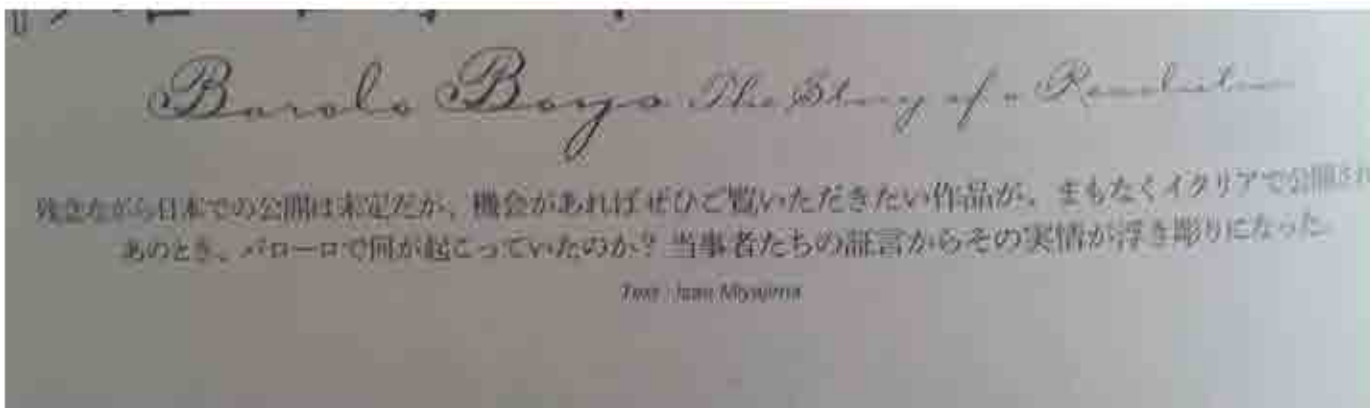 Barolo Boys The Story of a Revolution
残念ながら日本での公開は未定だが、機会があればぜひご覧いただきたい作品が、まもなくイタリアで公開され
あのとき、バローロで何が起こっていたのか? 当事者たちの証言からその実情が浮き彫りになった
Text : Isao Miyajima